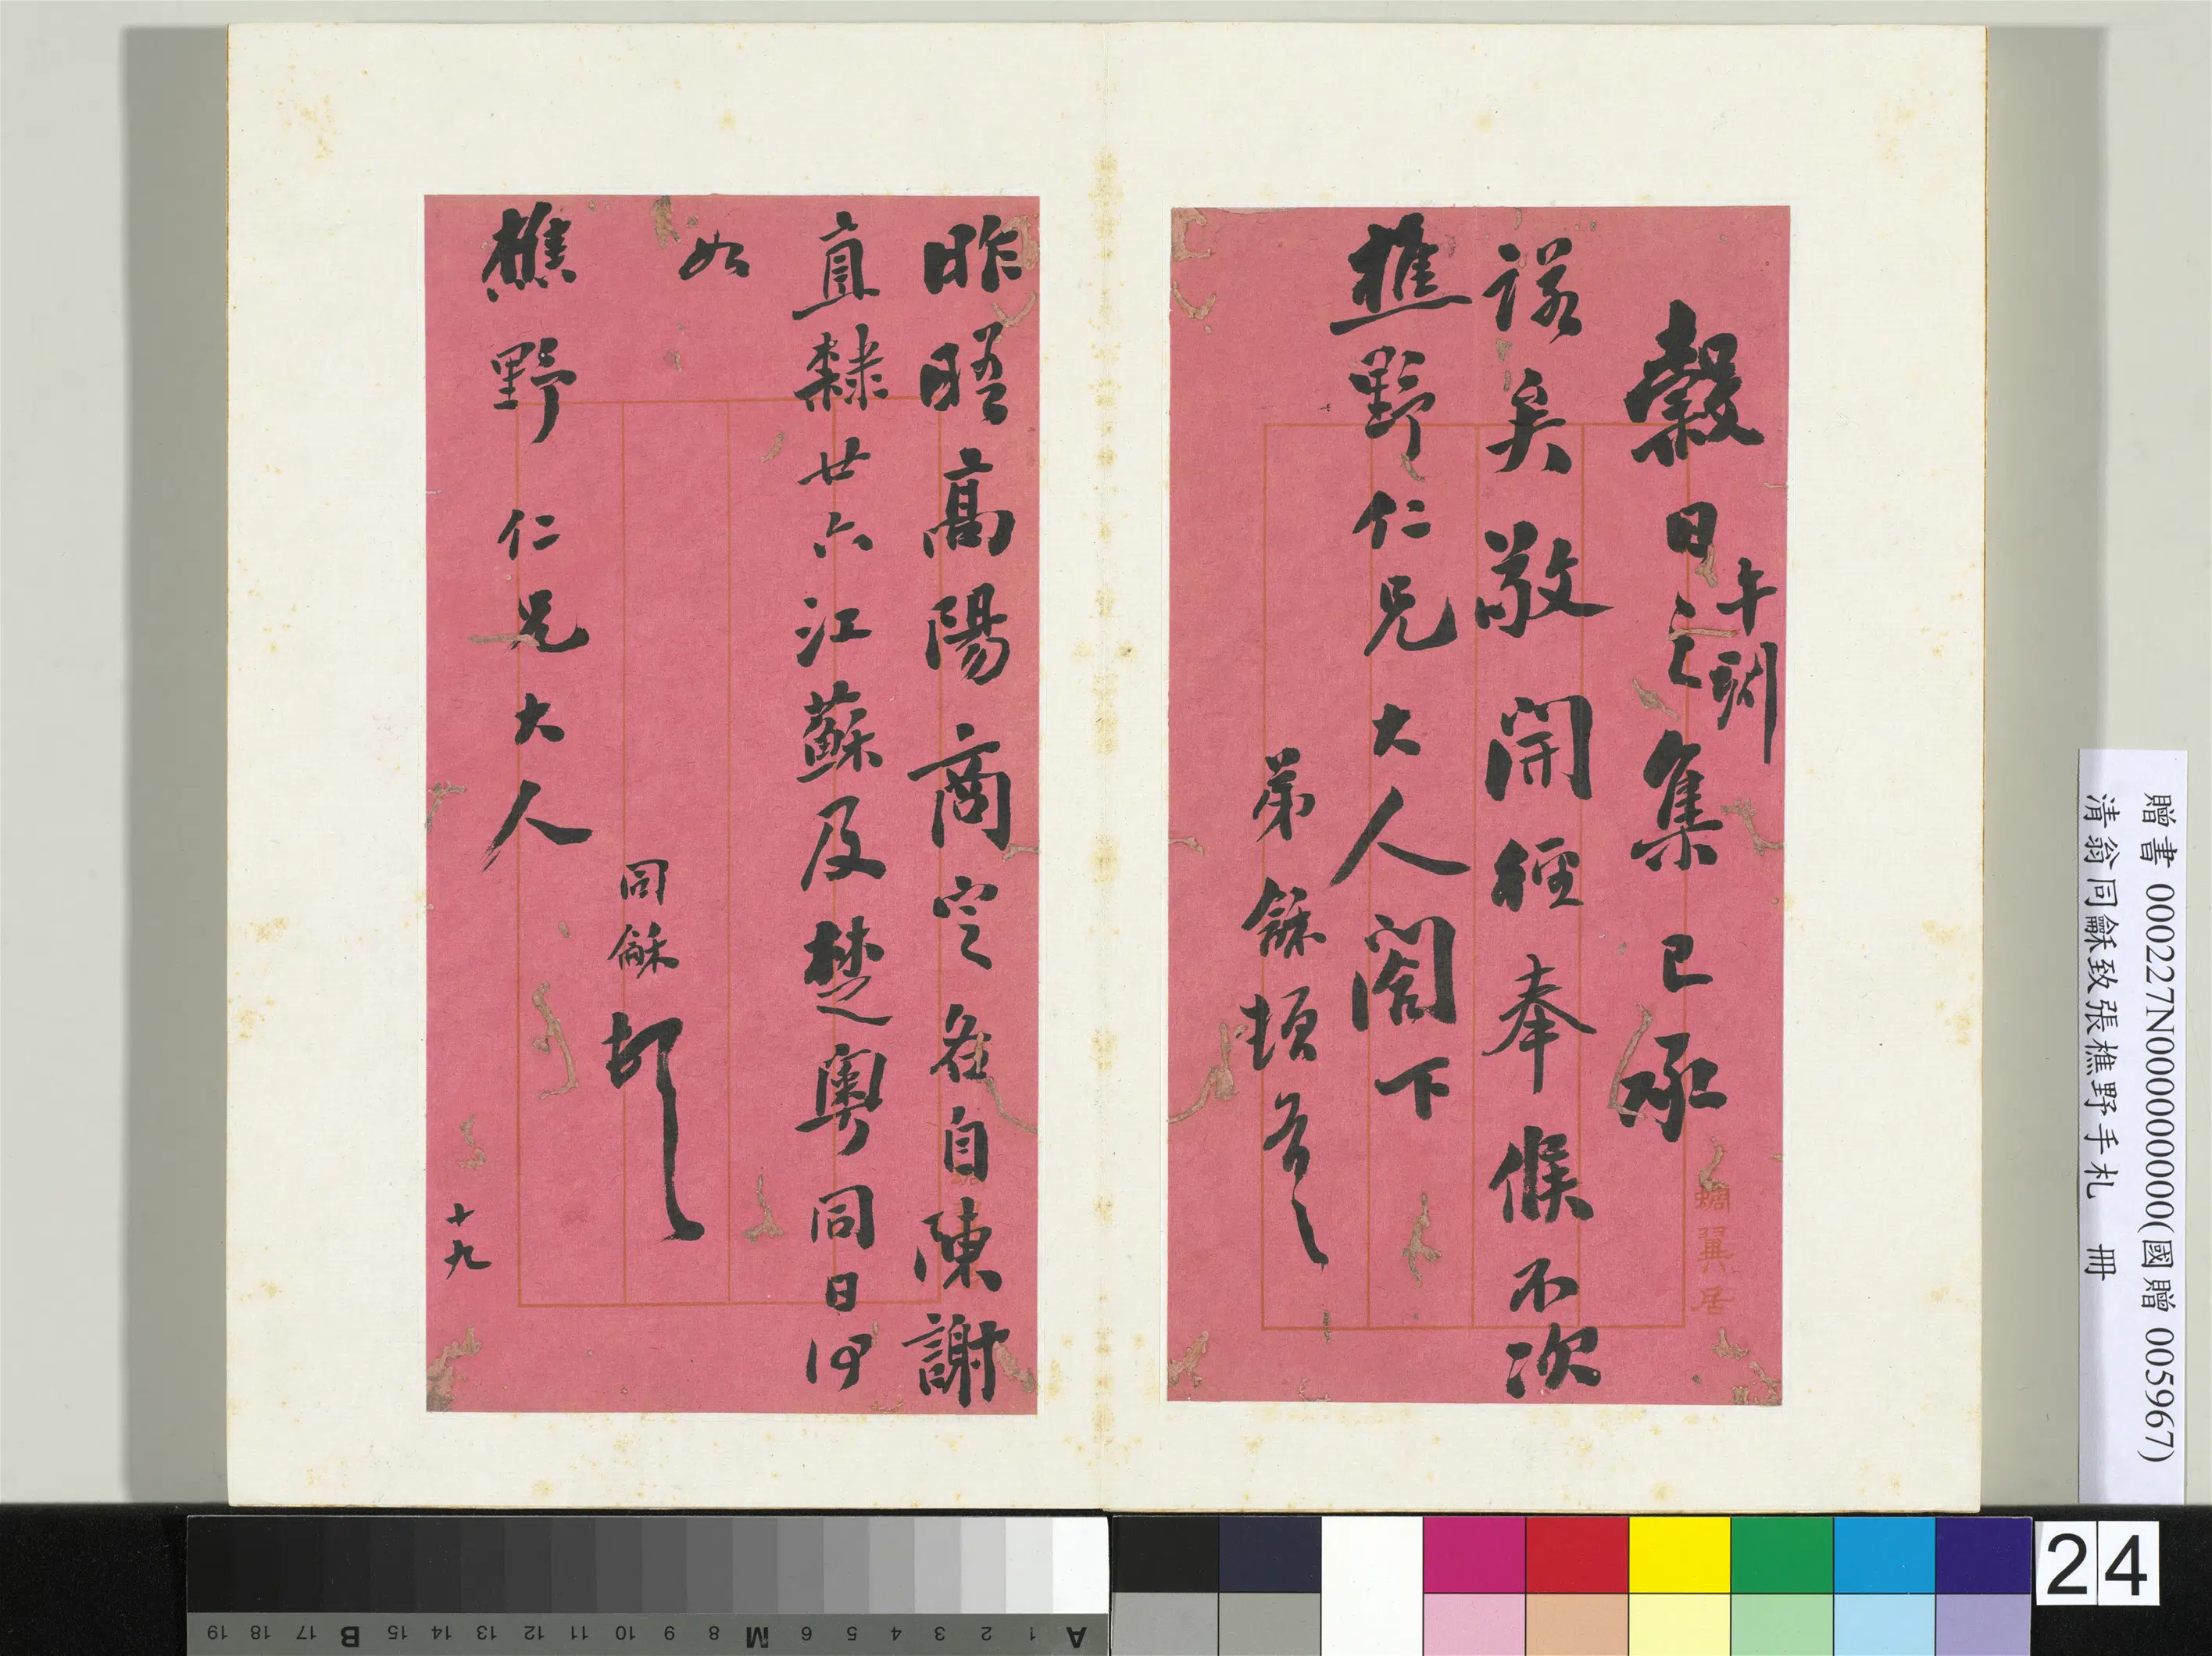 穀日之集已承
午刻
諾矣敬開徑奉候不次
樵野仁兄大人閣下
弟龢頓首
蜩翼居
昨晤高陽商定各自陳謝
直隸廿六江蘇及楚粵同日何
如
樵野仁兄大人
同龢頓首
十九
贈書 000227N000000000(國贈 005967)
清翁同龢致張樵野手札 冊
24
A 1 2 3 4 5 6 M 8 9 10 11 12 13 14 15 B 17 18 19